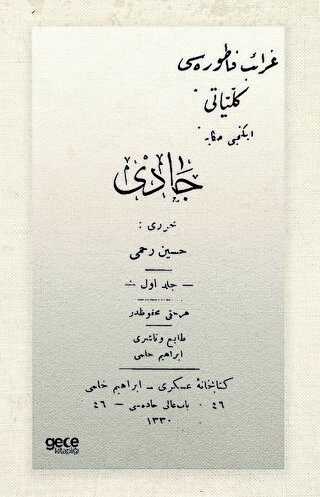 غرائب فاطوره‌سى
كلّياتى
ايكنجى حكايه
جادى
محررى :
حسين رحمى
— جلد اول —
هر حقى محفوظدر
طابع و ناشرى
ابراهيم حلمى
كتابخانهٔ عسكرى – ابراهيم حلمى
٤٦ · باب عالى جاده‌سى — ٤٦
١٣٣٠
gece
kitaplığı